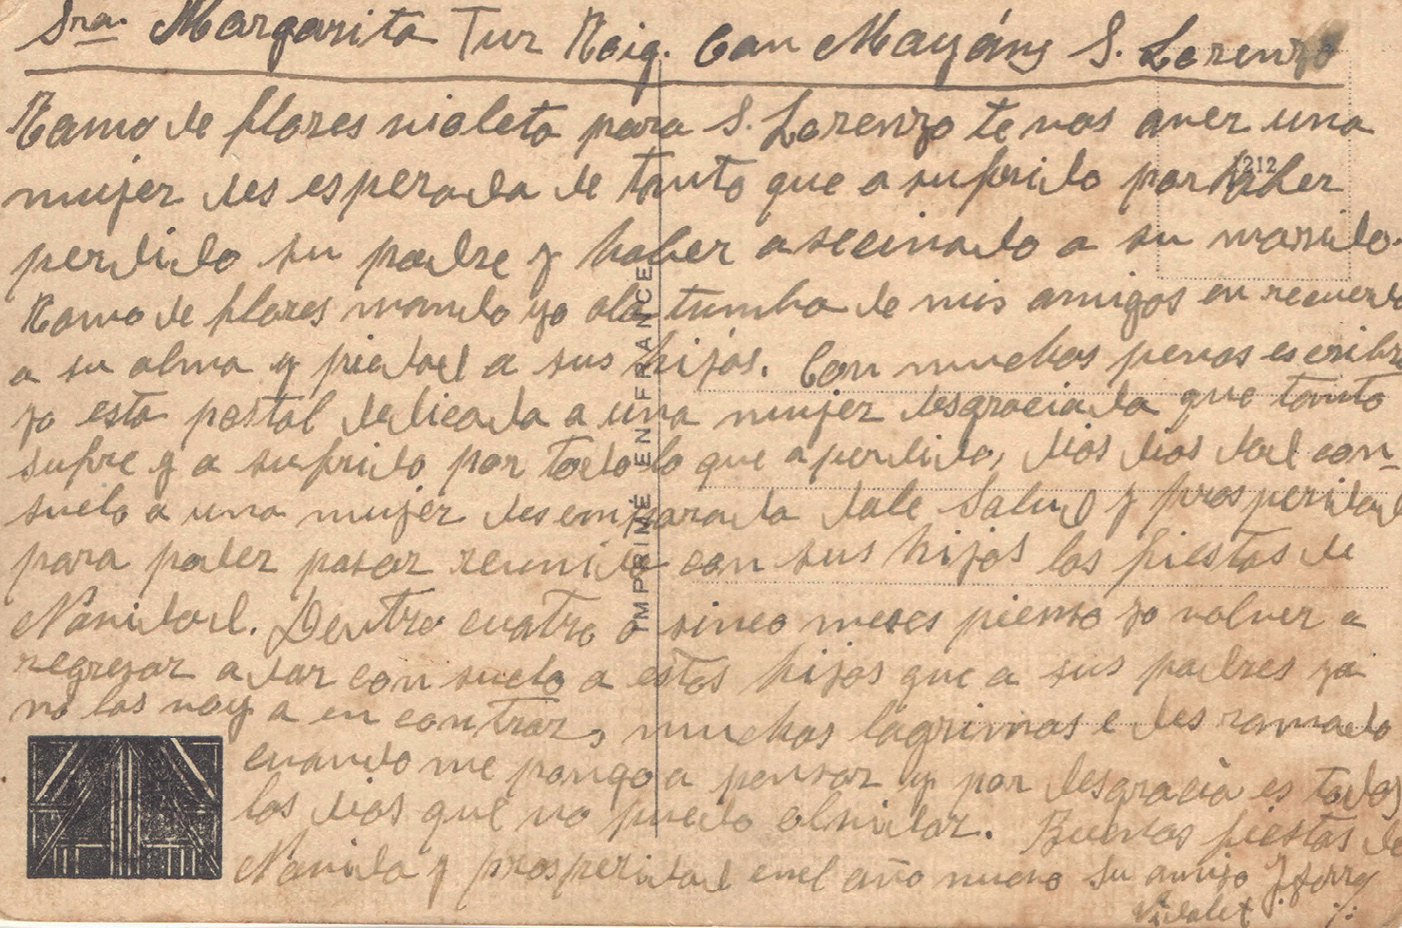 Sra. Margarita Tur Roig. Can Mayáns S. Lorenzo
Ramo de flores violeta para S. Lorenzo te vas aver una
mujer des esperada de tanto que a sufrido por haber
perdido su padre y haber asecinado a su marido.
Ramo de flores mando yo ala tumba de mis amigos en recuerdo
a su alma y piedad a sus hijos. Con muchas penas escribo
yo esta postal dedicada a una mujer desgraciada que tanto
sufre y a sufrido por todo lo que a perdido, dios dios dad con-
suelo a una mujer desemparada dale Salud y prosperidad
para poder pasar reunido con sus hijos las fiestas de
Navidad. Dentro cuatro o sinco meses pienso yo volver a
regresar a dar con suelo a estos hijos que a sus padres ya
no los voy a en contrar, muchas lágrimas e des ramado
cuando me pongo a pensar y por desgracia es todos
los dias que no puedo olvidar. Buenas fiestas de
Navida y prosperidad enel año nuevo su amigo J.
Vidalet
1212
IMPRIMÉ EN FRANCE